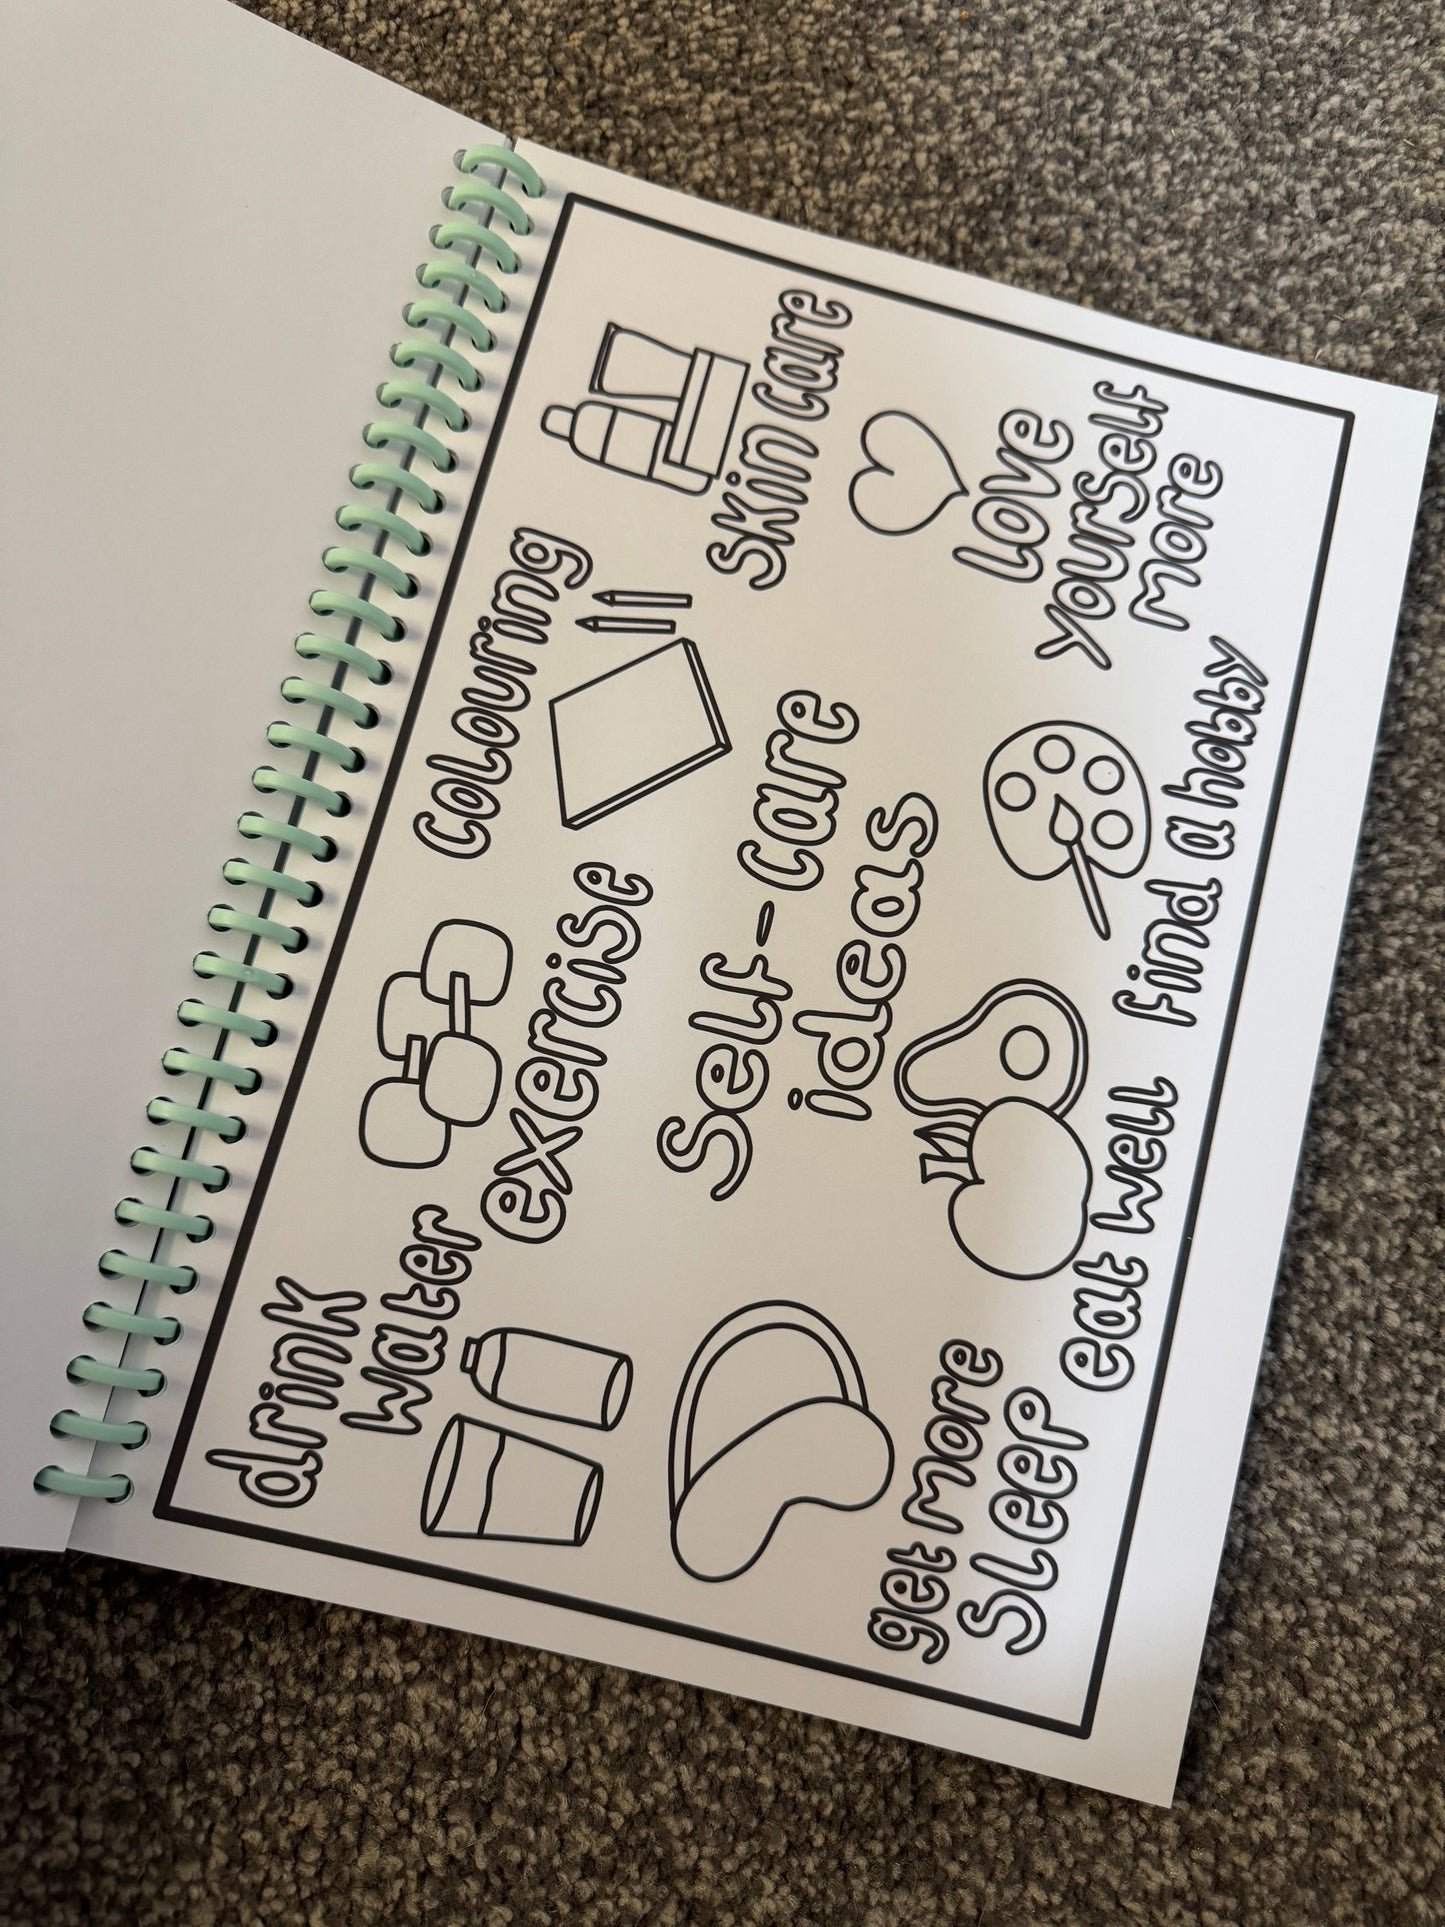 drink
water
exercise
Colouring
Skin Care
Self-Care
ideas
get more
Sleep
eat well
find a hobby
Love
yourself
more